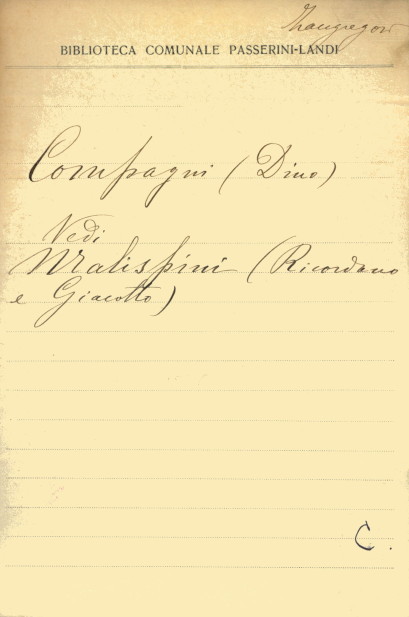 BIBLIOTECA COMUNALE PASSERINI-LANDI
Compagni (Dino)
Vedi
Malispini (Ricordano
e Giacotto)
C.